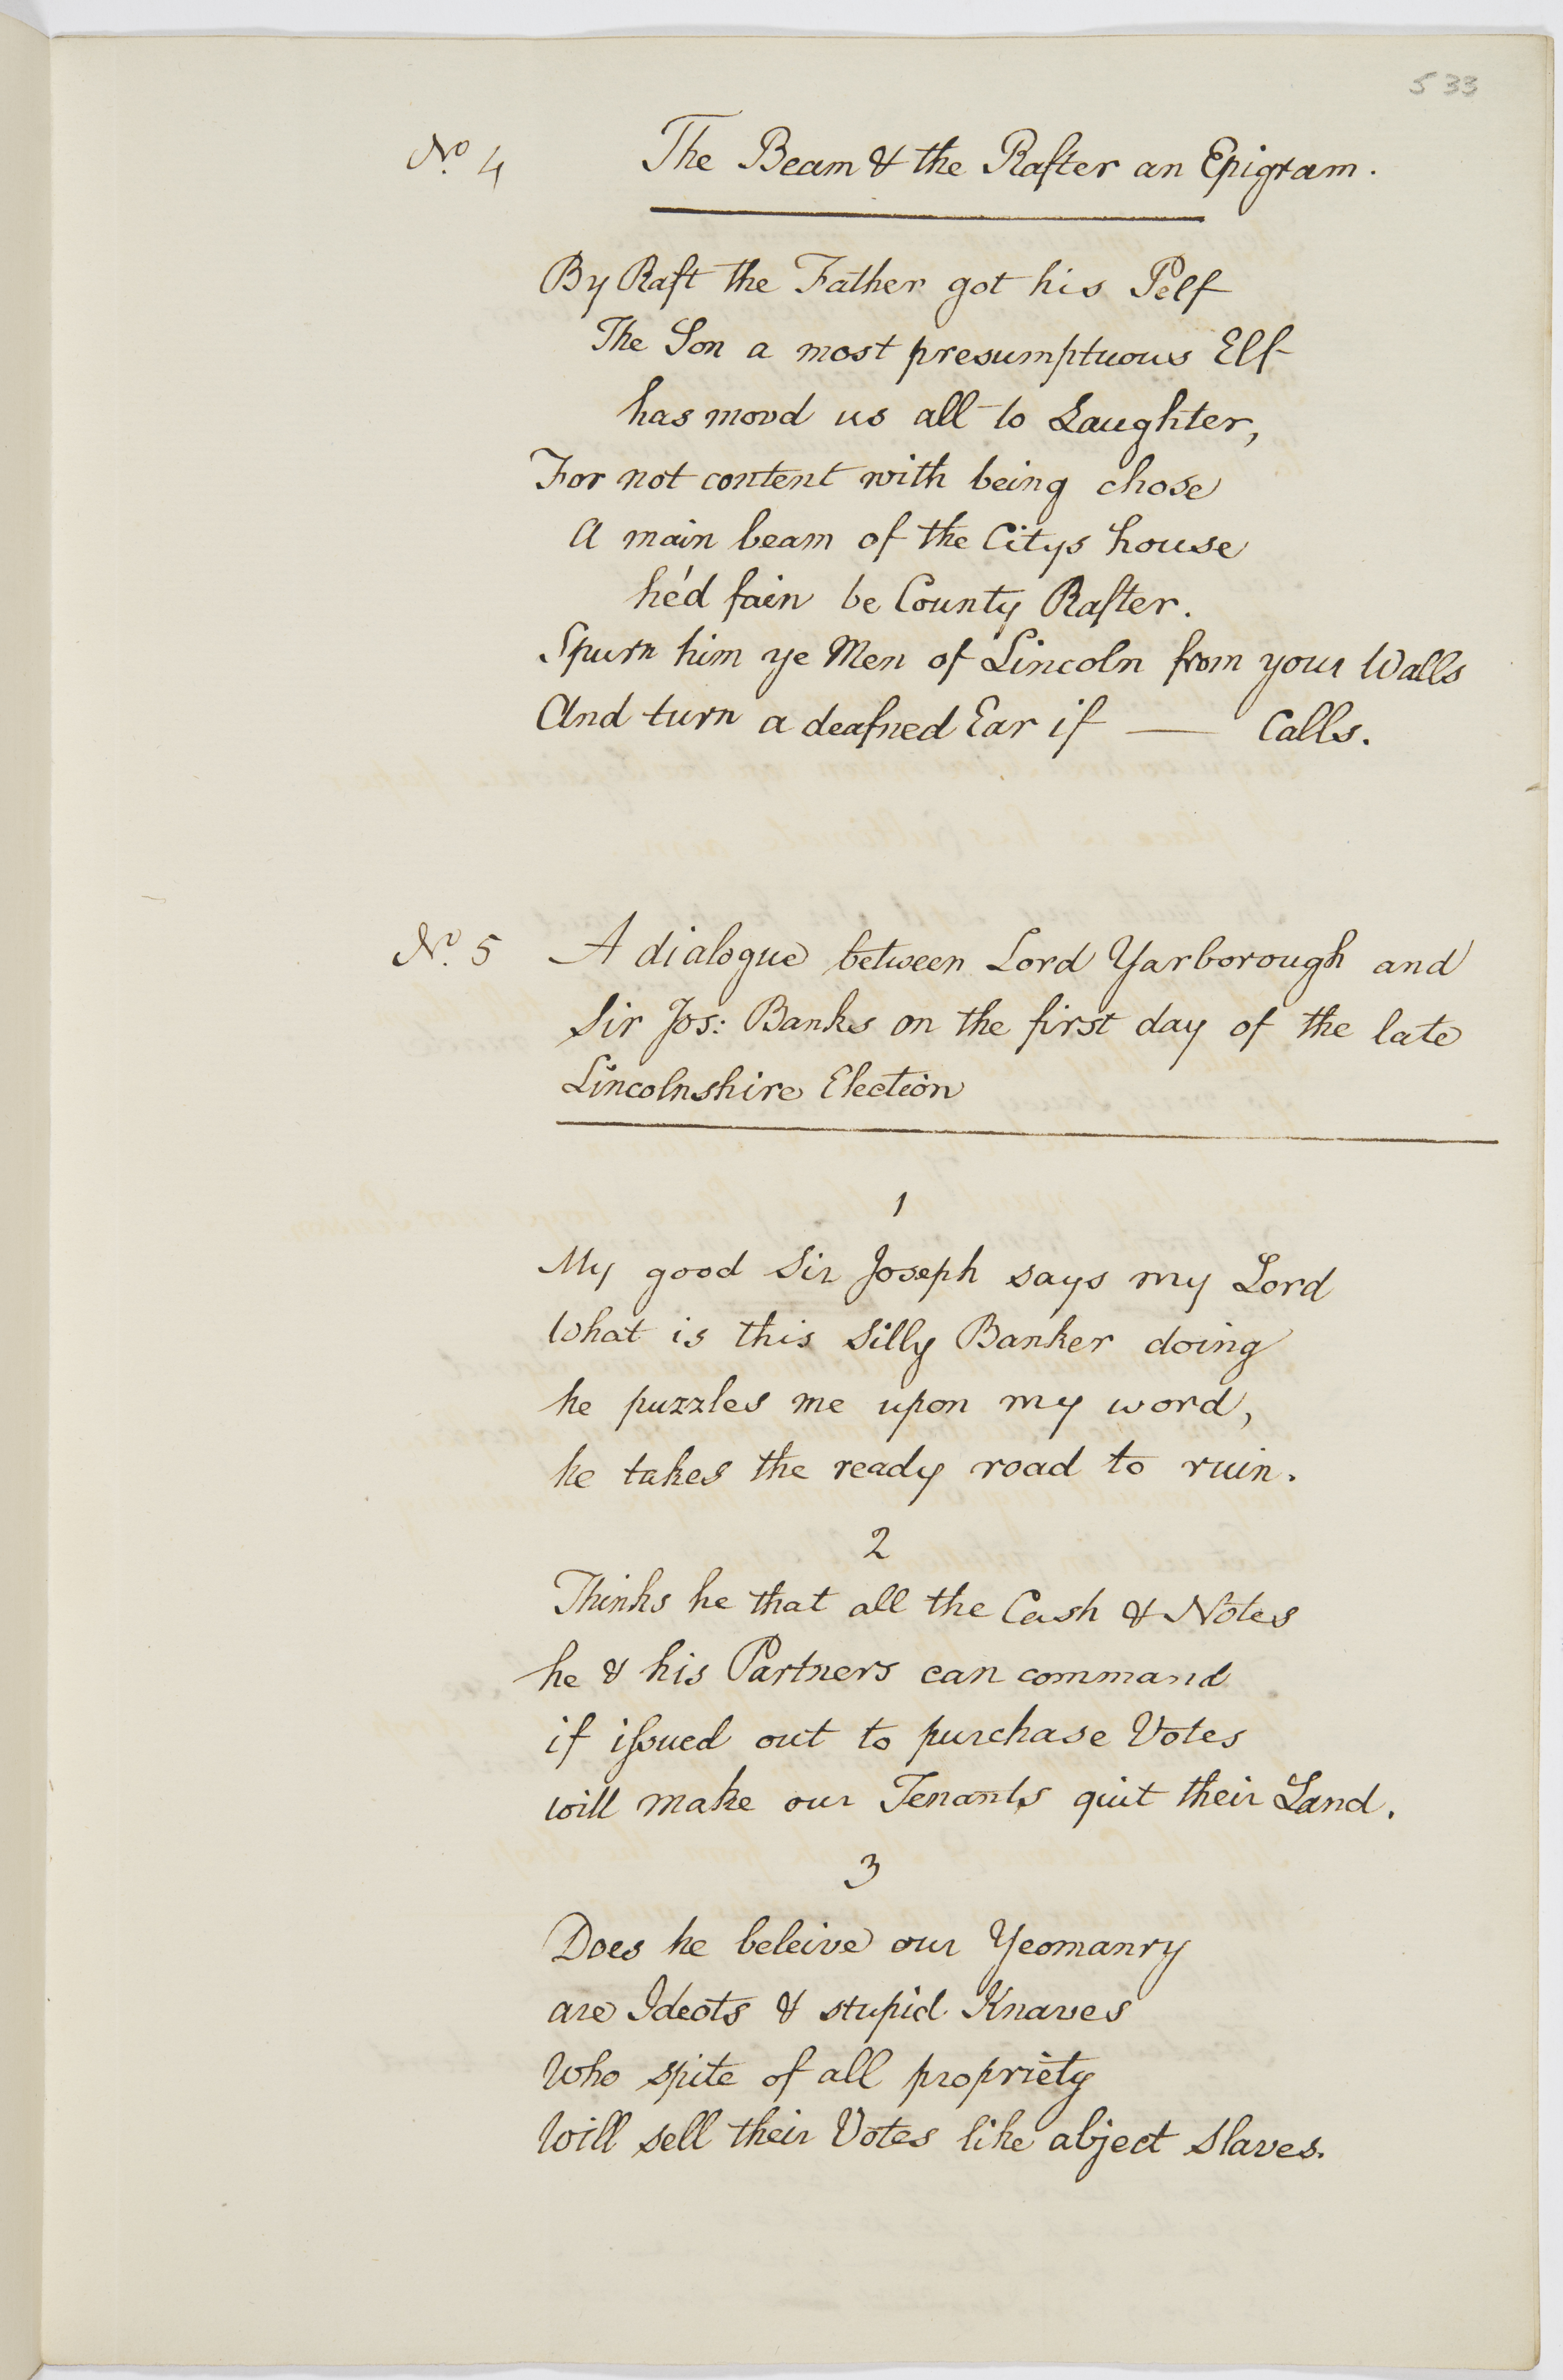 533
No. 4 The Beam & the Rafter an Epigram.
By Raft the Father got his Pelf
The Son a most presumptuous Elf
has movd us all to Laughter,
For not content with being chose
A main beam of the Citys house
he'd fain be County Rafter.
Spurn him ye Men of Lincoln from your Walls
And turn a deafned Ear if —— Calls.
No. 5 A dialogue between Lord Yarborough and
Sir Jos: Banks on the first day of the late
Lincolnshire Election
1
My good Sir Joseph says my Lord
What is this Silly Banker doing
he puzzles me upon my word,
he takes the ready road to ruin.
2
Thinks he that all the Cash & Notes
he & his Partners can command
if issued out to purchase Votes
will make our Tenants quit their Land.
3
Does he beleive our Yeomanry
are Ideots & stupid Knaves
Who spite of all propriety
Will sell their Votes like abject Slaves.